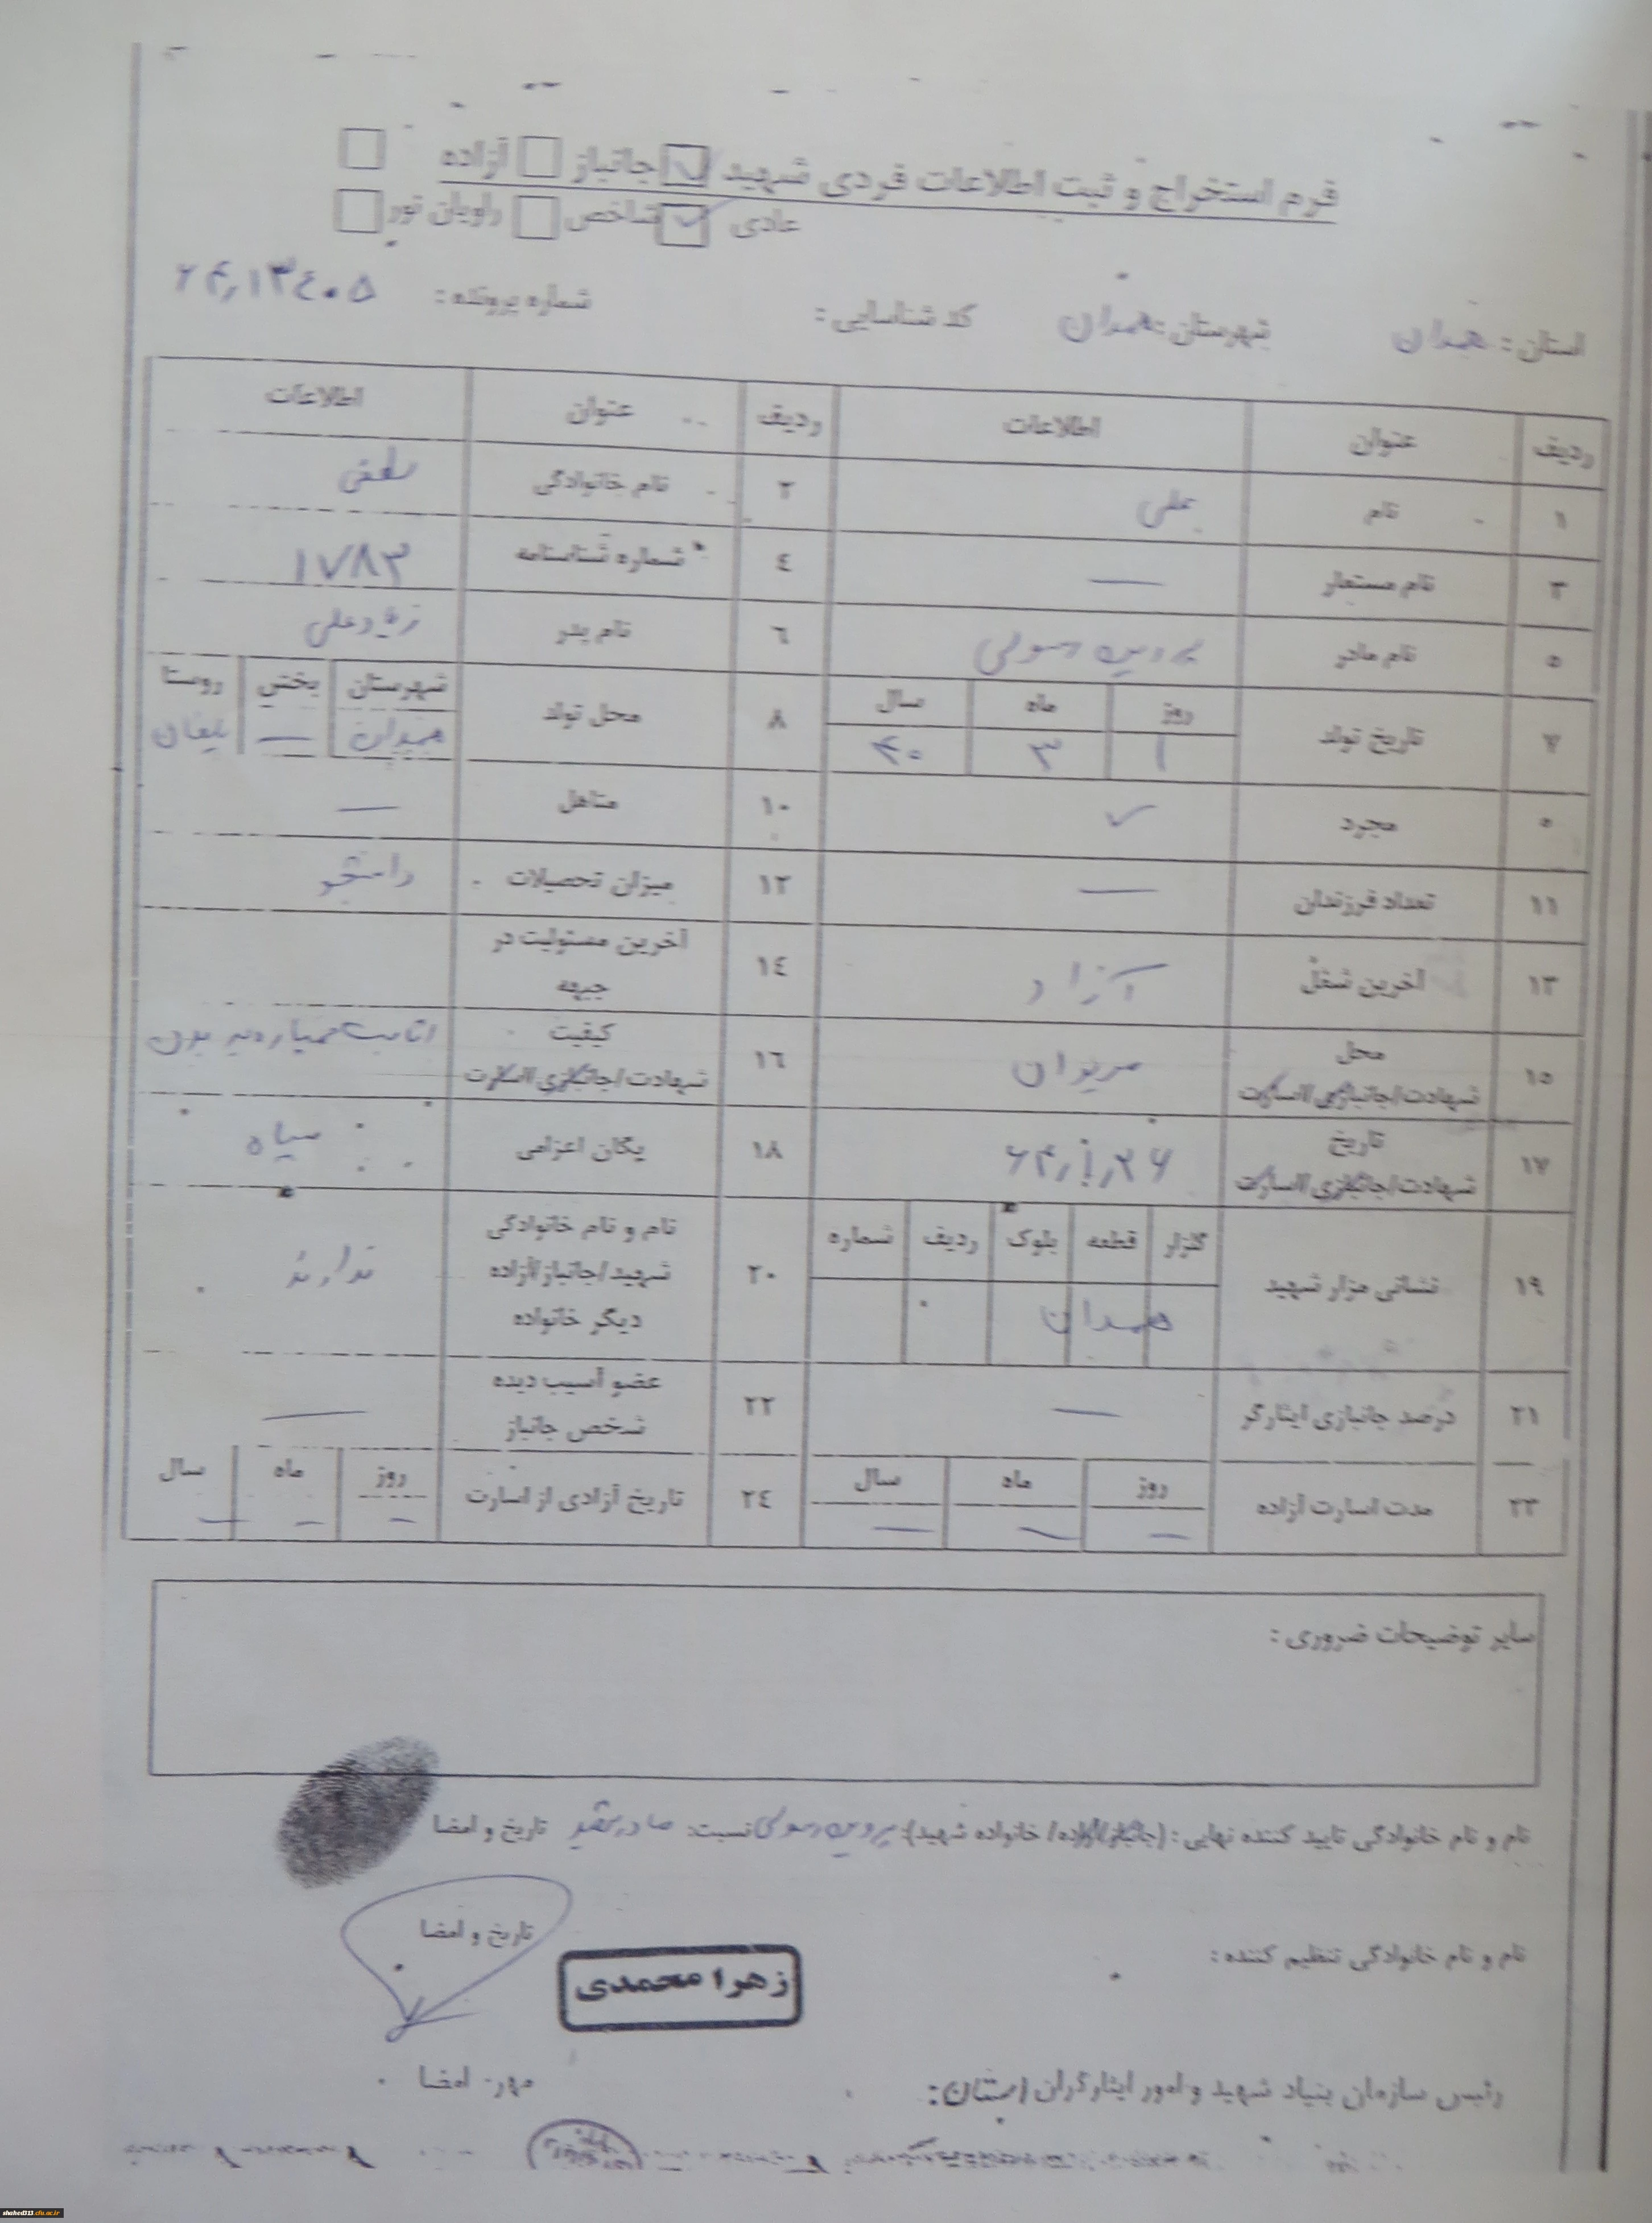 فرم استخراج و ثبت اطلاعات فردی شهید جانباز آزاده
عادی شاخص راویان نور
استان: همدان شهرستان: همدان کد شناسایی: شماره پرونده: ۶۴٫۱۳٤۰۵
ردیف عنوان اطلاعات ردیف عنوان اطلاعات
۱ نام علی ۲ نام خانوادگی
۳ نام مستعار — ٤ شماره شناسنامه ۱۷۸۳
۵ نام مادر پروین رسولی ٦ نام پدر
۷ تاریخ تولد روز ماه سال ۸ محل تولد شهرستان بخش روستا
۱ ۳ ۴۰ همدان —
۹ مجرد ✓ ۱۰ متاهل —
۱۱ تعداد فرزندان — ۱۲ میزان تحصیلات دانشجو
۱۳ آخرین شغل آزاد ۱٤ آخرین مسئولیت در جبهه
۱۵ محل شهادت/جانبازی/اسارت مریوان ۱٦ کیفیت شهادت/جانبازی/اسارت اثابت خمپاره به بدن
۱۷ تاریخ شهادت/جانبازی/اسارت ۱۸ یگان اعزامی سپاه
۱۹ نشانی مزار شهید گلزار قطعه بلوک ردیف شماره ۲۰ نام و نام خانوادگی شهید/جانباز/آزاده دیگر خانواده ندارند
همدان
۲۱ درصد جانبازی ایثارگر — ۲۲ عضو آسیب دیده شخص جانباز —
۲۳ مدت اسارت آزاده روز ماه سال ۲٤ تاریخ آزادی از اسارت روز ماه سال
— — — — — —
سایر توضیحات ضروری:
نام و نام خانوادگی تایید کننده نهایی: (جانباز/آزاده/خانواده شهید): پروین رسولی نسبت: مادر شهید تاریخ و امضا
نام و نام خانوادگی تنظیم کننده: زهرا محمدی تاریخ و امضا
رئیس سازمان بنیاد شهید و امور ایثارگران استان: مهر- امضا
shahed313.cfu.ac.ir